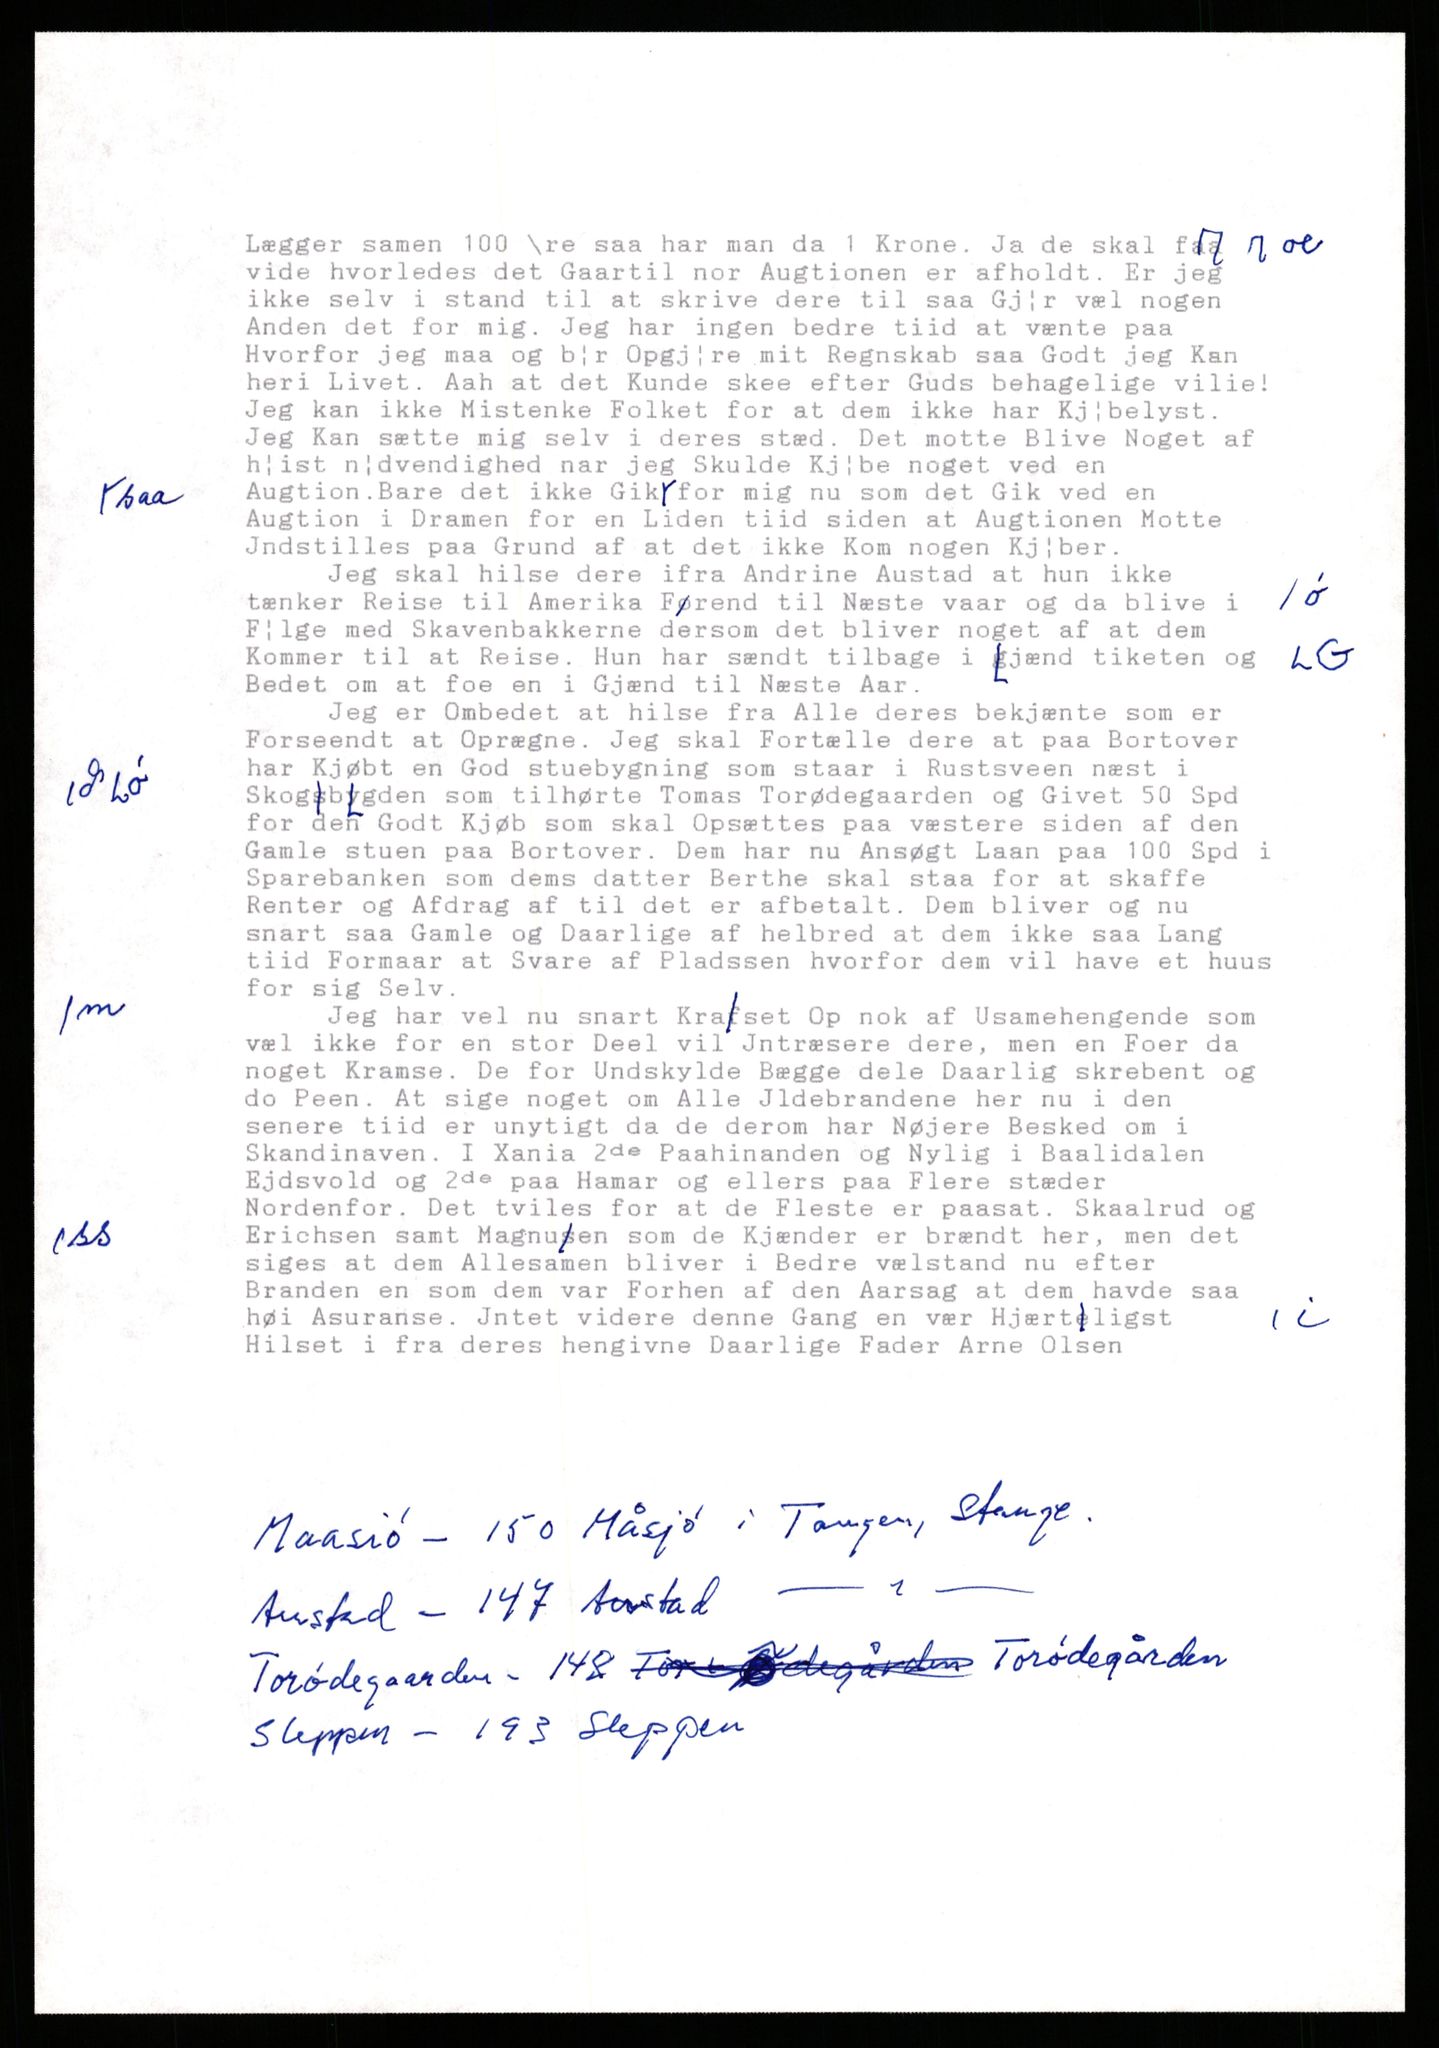 Lægger samen 100 \re saa har man da 1 Krone. Ja de skal faa ⁊ oe
vide hvorledes det Gaartil nor Augtionen er afholdt. Er jeg
ikke selv i stand til at skrive dere til saa Gj¦r væl nogen
Anden det for mig. Jeg har ingen bedre tiid at vænte paa
Hvorfor jeg maa og b¦r Opgj¦re mit Regnskab saa Godt jeg Kan
heri Livet. Aah at det Kunde skee efter Guds behagelige vilie!
Jeg kan ikke Mistenke Folket for at dem ikke har Kj¦belyst.
Jeg Kan sætte mig selv i deres stæd. Det motte Blive Noget af
h¦ist n¦dvendighed nar jeg Skulde Kj¦be noget ved en
ɤ saa Augtion.Bare det ikke Gik ɤ for mig nu som det Gik ved en
Augtion i Dramen for en Liden tiid siden at Augtionen Motte
Jndstilles paa Grund af at det ikke Kom nogen Kj¦ber.
Jeg skal hilse dere ifra Andrine Austad at hun ikke
tænker Reise til Amerika Førend til Næste vaar og da blive i / ó
F¦lge med Skavenbakkerne dersom det bliver noget af at dem
Kommer til at Reise. Hun har sændt tilbage i gjænd tiketen og L G
Bedet om at foe en i Gjænd til Næste Aar.
Jeg er Ombedet at hilse fra Alle deres bekjænte som er
Forseendt at Oprægne. Jeg skal Fortælle dere at paa Bortover
har Kjøbt en God stuebygning som staar i Rustsveen næst i
Skogsbygden som tilhørte Tomas Torødegaarden og Givet 50 Spd
for den Godt Kjøb som skal Opsættes paa væstere siden af den
Gamle stuen paa Bortover. Dem har nu Ansøgt Laan paa 100 Spd i
Sparebanken som dems datter Berthe skal staa for at skaffe
Renter og Afdrag af til det er afbetalt. Dem bliver og nu
snart saa Gamle og Daarlige af helbred at dem ikke saa Lang
tiid Formaar at Svare af Pladssen hvorfor dem vil have et huus
for sig Selv.
/ m Jeg har vel nu snart Krafset Op nok af Usamehengende som
væl ikke for en stor Deel vil Jntræsere dere, men en Foer da
noget Kramse. De for Undskylde Bægge dele Daarlig skrebent og
do Peen. At sige noget om Alle Jldebrandene her nu i den
senere tiid er unytigt da de derom har Nøjere Besked om i
Skandinaven. I Xania 2de Paahinanden og Nylig i Baalidalen
Ejdsvold og 2de paa Hamar og ellers paa Flere stæder
Nordenfor. Det tviles for at de Fleste er paasat. Skaalrud og
/ ss Erichsen samt Magnusen som de Kjænder er brændt her, men det
siges at dem Allesamen bliver i Bedre vælstand nu efter
Branden en som dem var Forhen af den Aarsag at dem havde saa
høi Asuranse. Jntet videre denne Gang en vær Hjærteligst / i
Hilset i fra deres hengivne Daarlige Fader Arne Olsen
Maasió – 150 Måsjó i Tangen, Stange.
Austad – 147 Austad — " —
Torödegaarden – 148 Torödegården
Sleppen – 193 Sleppen